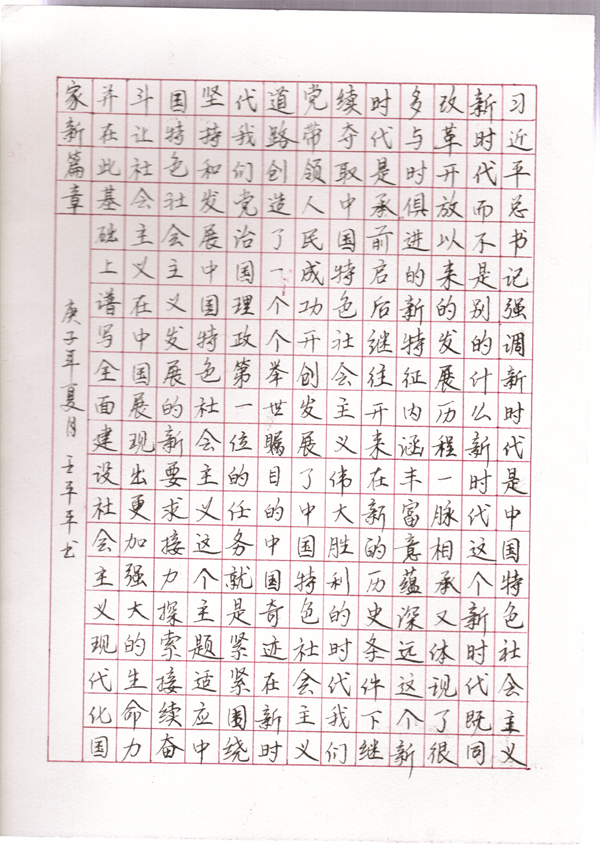 习近平总书记强调新时代是中国特色社会主义
新时代而不是别的什么新时代这个新时代既同
改革开放以来的发展历程一脉相承又体现了很
多与时俱进的新特征内涵丰富意蕴深远这个新
时代是承前启后继往开来在新的历史条件下继
续夺取中国特色社会主义伟大胜利的时代我们
党带领人民成功开创发展了中国特色社会主义
道路创造了一个个举世瞩目的中国奇迹在新时
代我们党治国理政第一位的任务就是紧紧围绕
坚持和发展中国特色社会主义这个主题适应中
国特色社会主义发展的新要求接力探索接续奋
斗让社会主义在中国展现出更加强大的生命力
并在此基础上谱写全面建设社会主义现代化国
家新篇章
庚子年夏月 王平平书